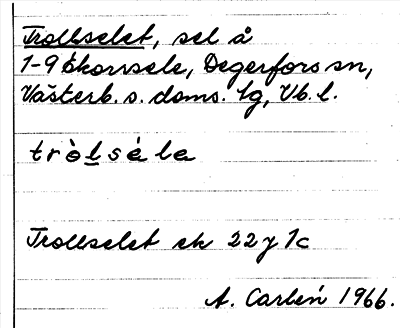 Trollselet, sel å
1-9 Ekorrsele, Degerfors sn,
Västerb. s. doms. lg, Vb. l.
tròlsela
Trollselet ek 22 y 1c
A. Carlén 1966.